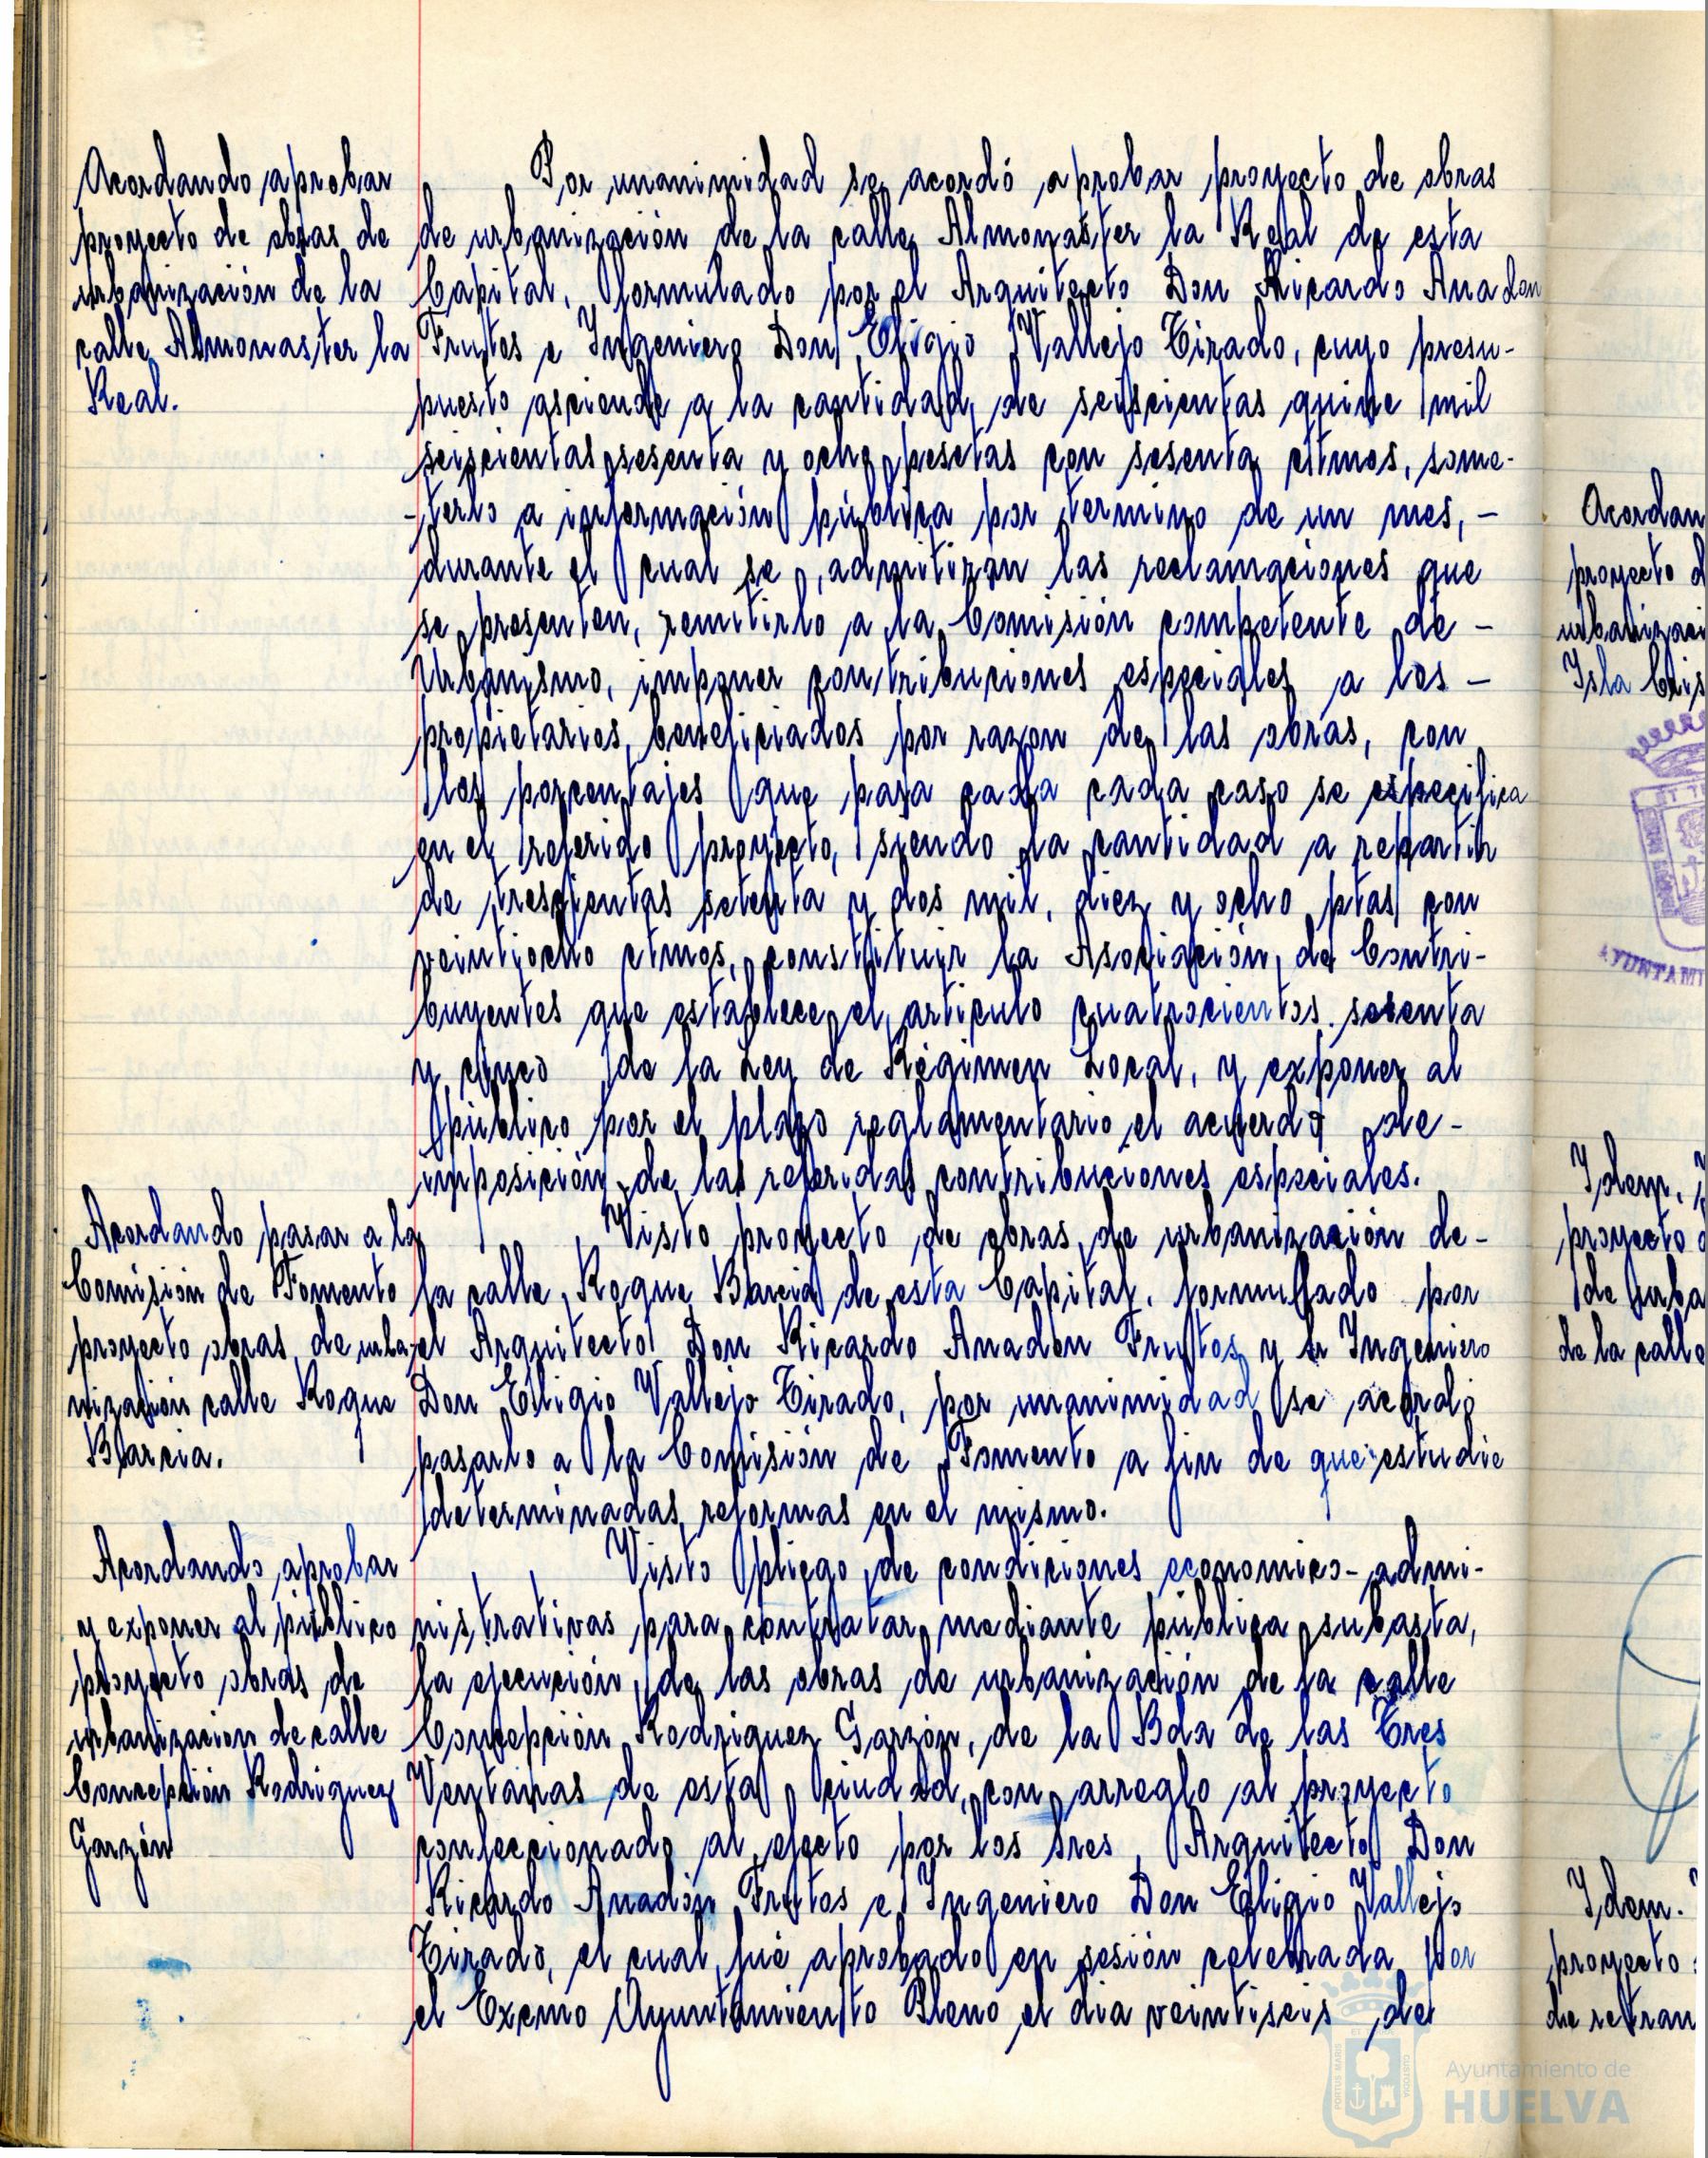 Acordando aprobar
proyecto de obras de
urbanización de la
calle Almonaster la
Real.
Por unanimidad se acordó aprobar proyecto de obras
de urbanización de la calle Almonaster la Real de esta
Capital, formulado por el Arquitecto Don Ricardo Anadon
Frutos e Ingeniero Don Eligio Vallejo Tirado, cuyo presu-
puesto asciende a la cantidad de seiscientas quince mil
seiscientas sesenta y ocho pesetas con sesenta ctmos, some-
-terlo a información pública por termino de un mes, -
durante el cual se admitirán las reclamaciones que
se presenten, remitirlo a la Comisión competente de -
Urbanismo, imponer contribuciones especiales a los -
propietarios beneficiados por razon de las obras, con
los porcentajes que para cada cada caso se especifica
en el referido proyecto, siendo la cantidad a repartir
de trescientas setenta y dos mil, diez y ocho ptas con
veintiocho ctmos, constituir la Asociación de Contri-
buyentes que establece el articulo cuatrocientos sesenta
y cinco de la Ley de Régimen Local, y exponer al
público por el plazo reglamentario el acuerdo de -
imposición de las referidas contribuciones especiales.
Acordando pasar a la
Comisión de Fomento
proyecto obras de urba-
nización calle Roque
Barcia.
Visto proyecto de obras de urbanización de -
la calle Roque Barcia de esta Capital, formulado por
el Arquitecto Don Ricardo Anadón Frutos y el Ingeniero
Don Eligio Vallejo Tirado, por unanimidad se acordó
pasarlo a la Comisión de Fomento a fin de que estudie
determinadas reformas en el mismo.
Acordando aprobar
y exponer al público
proyecto obras de
urbanizacion de calle
Concepción Rodriguez
Garzón
Visto pliego de condiciones economico-admi-
nistrativas para contratar mediante pública subasta,
la ejecución de las obras de urbanización de la calle
Concepción Rodriguez Garzón, de la Bda de las Tres
Ventanas de esta ciudad, con arreglo al proyecto
confeccionado al efecto por los Sres Arquitecto Don
Ricardo Anadón Frutos e Ingeniero Don Eligio Vallejo
Tirado, el cual fué aprobado en sesión celebrada por
el Excmo Ayuntamiento Pleno el dia veintiseis de
Acordan
proyecto d
urbanizaci
Isla Cris
AYUNTAMI
Idem.
proyecto
de urba
de la calle
Idem.
proyecto
de retran
Ayuntamiento de
HUELVA
PORTUS MARIS
CUSTODIA